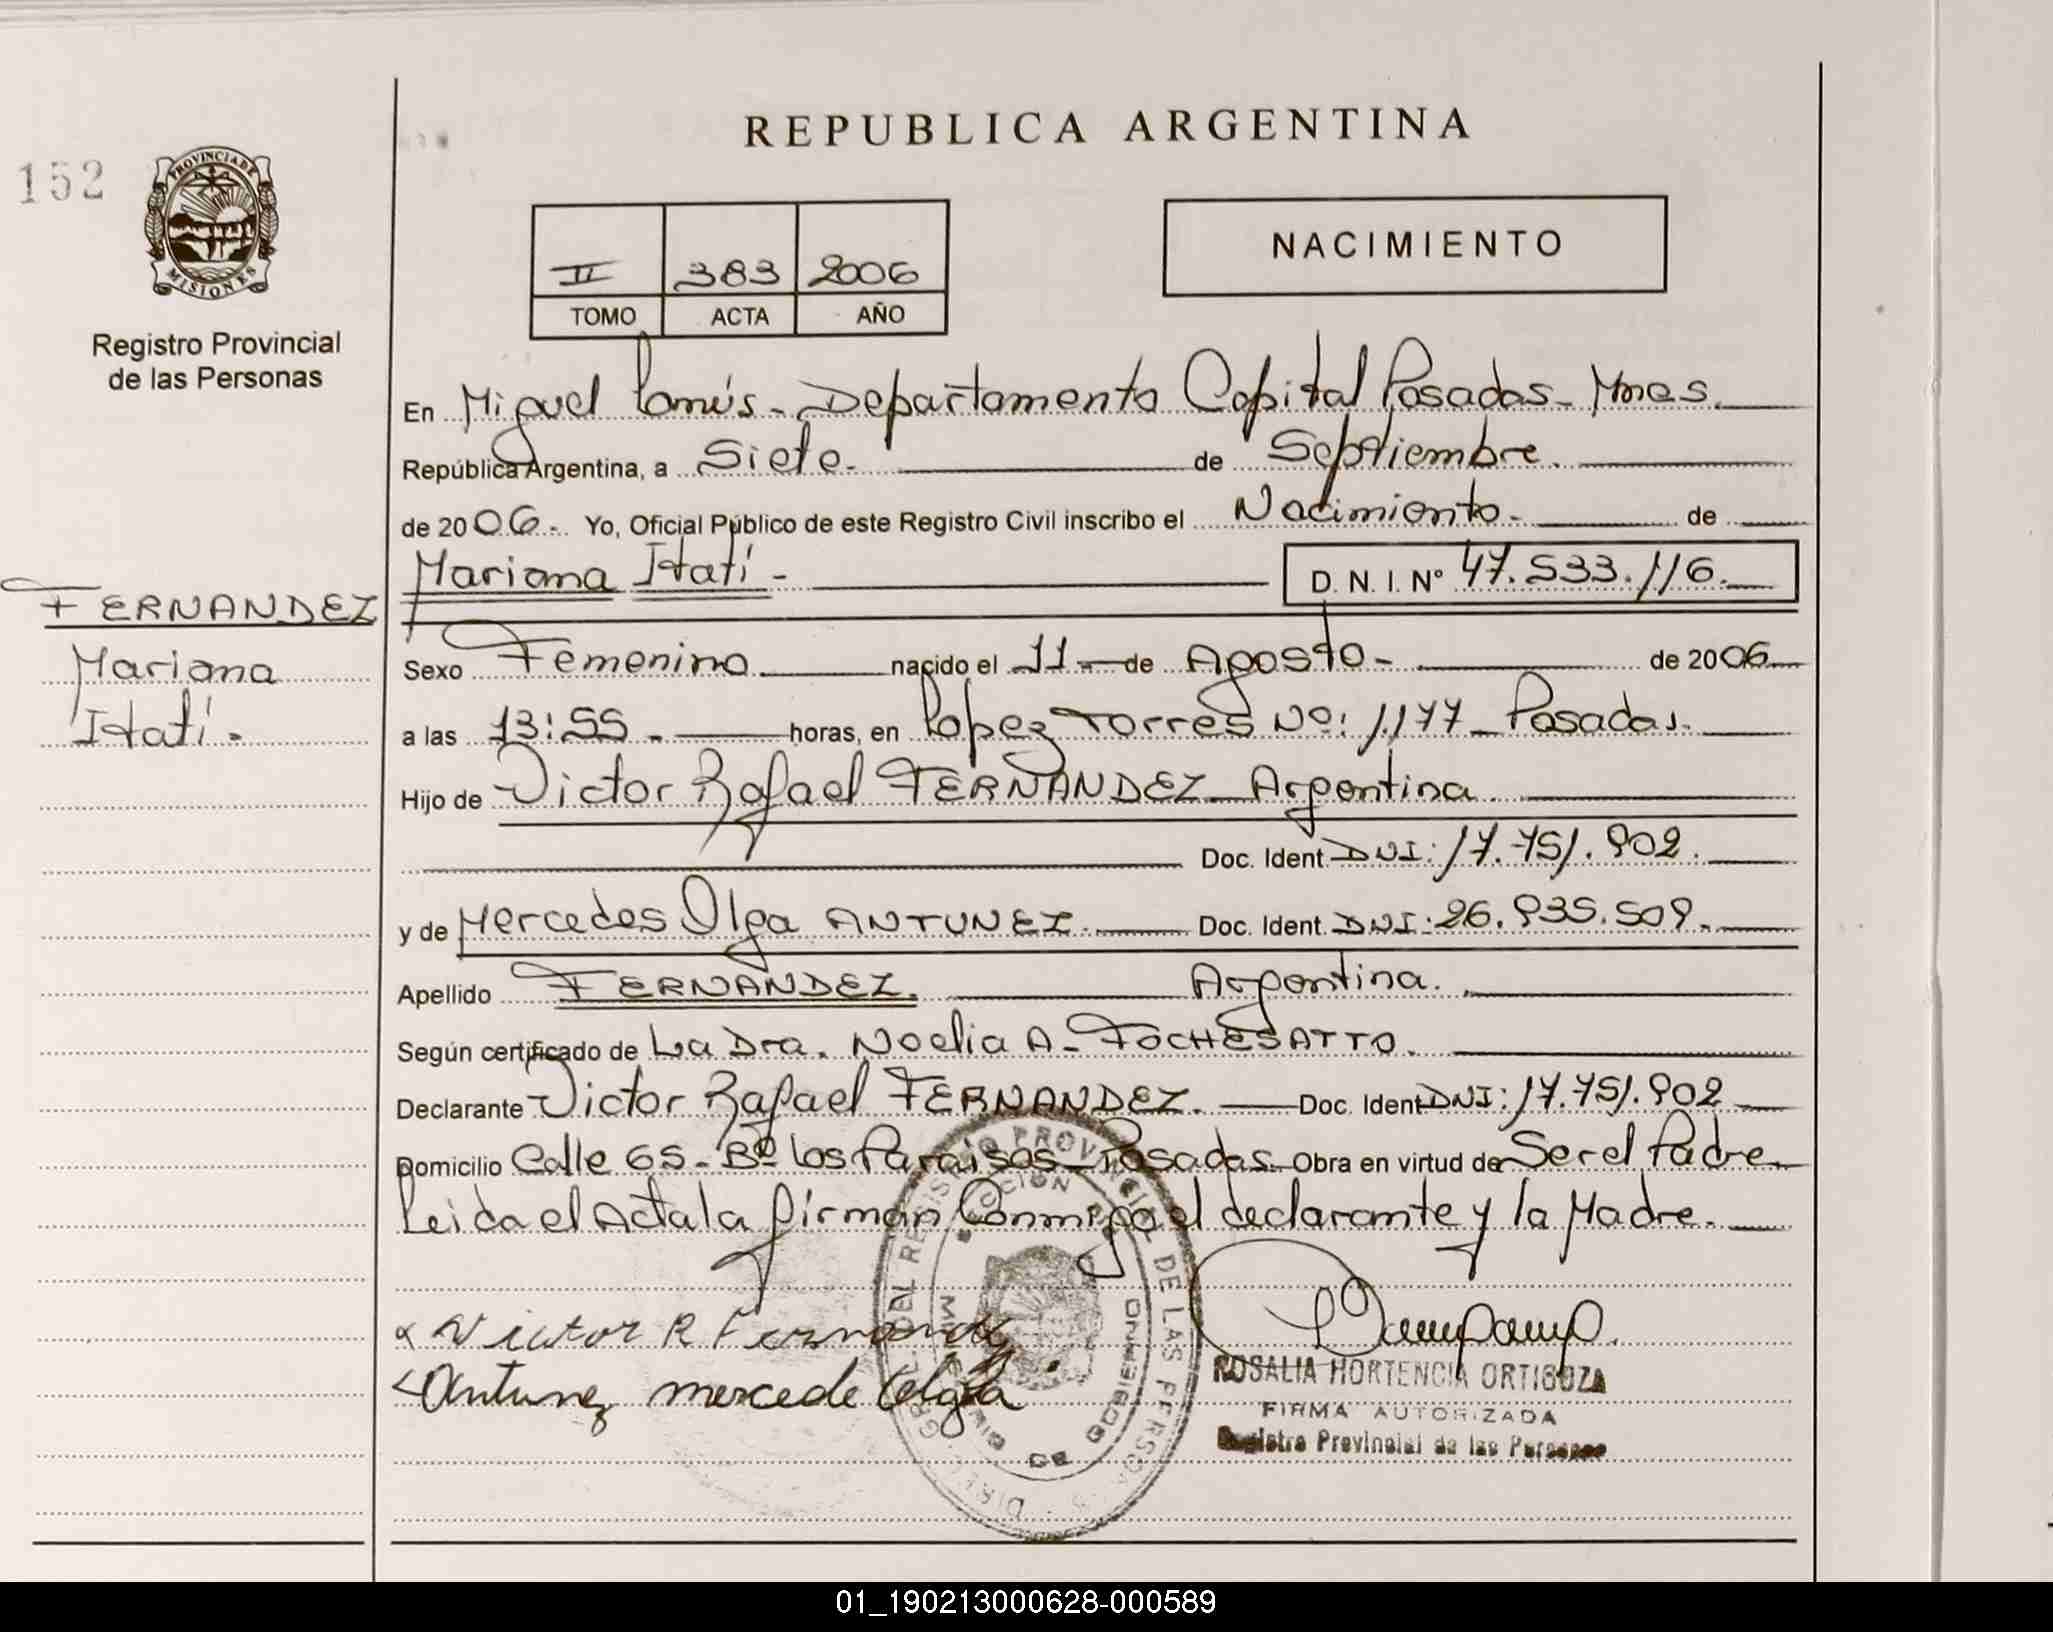 REPUBLICA ARGENTINA
152
PROVINCIA DE MISIONES
Registro Provincial
de las Personas
II 383 2006
TOMO ACTA AÑO
NACIMIENTO
En Miguel Lanús - Departamento Capital Posadas - Mnes.
República Argentina, a Siete. de Septiembre.
de 2006.- Yo, Oficial Público de este Registro Civil inscribo el Nacimiento - de
Mariana Itatí - D. N. I. Nº 47.533.116.
FERNANDEZ
Mariana
Itatí.-
Sexo Femenino nacido el 11 - de Agosto - de 2006
a las 13:55 - horas, en Lopez Torres Nº: 1.177 - Posadas.
Hijo de Victor Rafael FERNANDEZ - Argentina
Doc. Ident. DNI: 17.751.902.
y de Mercedes Olga ANTUNEZ. Doc. Ident. DNI: 26.935.509.
Apellido FERNANDEZ. Argentina.
Según certificado de La Dra. Noelia A. FOCHESATTO.
Declarante Victor Rafael FERNANDEZ. Doc. Ident. DNI: 17.751.902
Domicilio Calle 65 - Bº Los Paraisos - Posadas. Obra en virtud de Ser el Padre
Leida el Acta la firman Conmigo el declarante y la Madre.
Victor R Fernandez
Antunez mercede olga
DIREC. GRAL. DEL REGISTRO PROVINCIAL DE LAS PERSONAS
DE GOBIERNO
ROSALIA HORTENCIA ORTIGOZA
FIRMA AUTORIZADA
Registro Provincial de las Personas
01_190213000628-000589